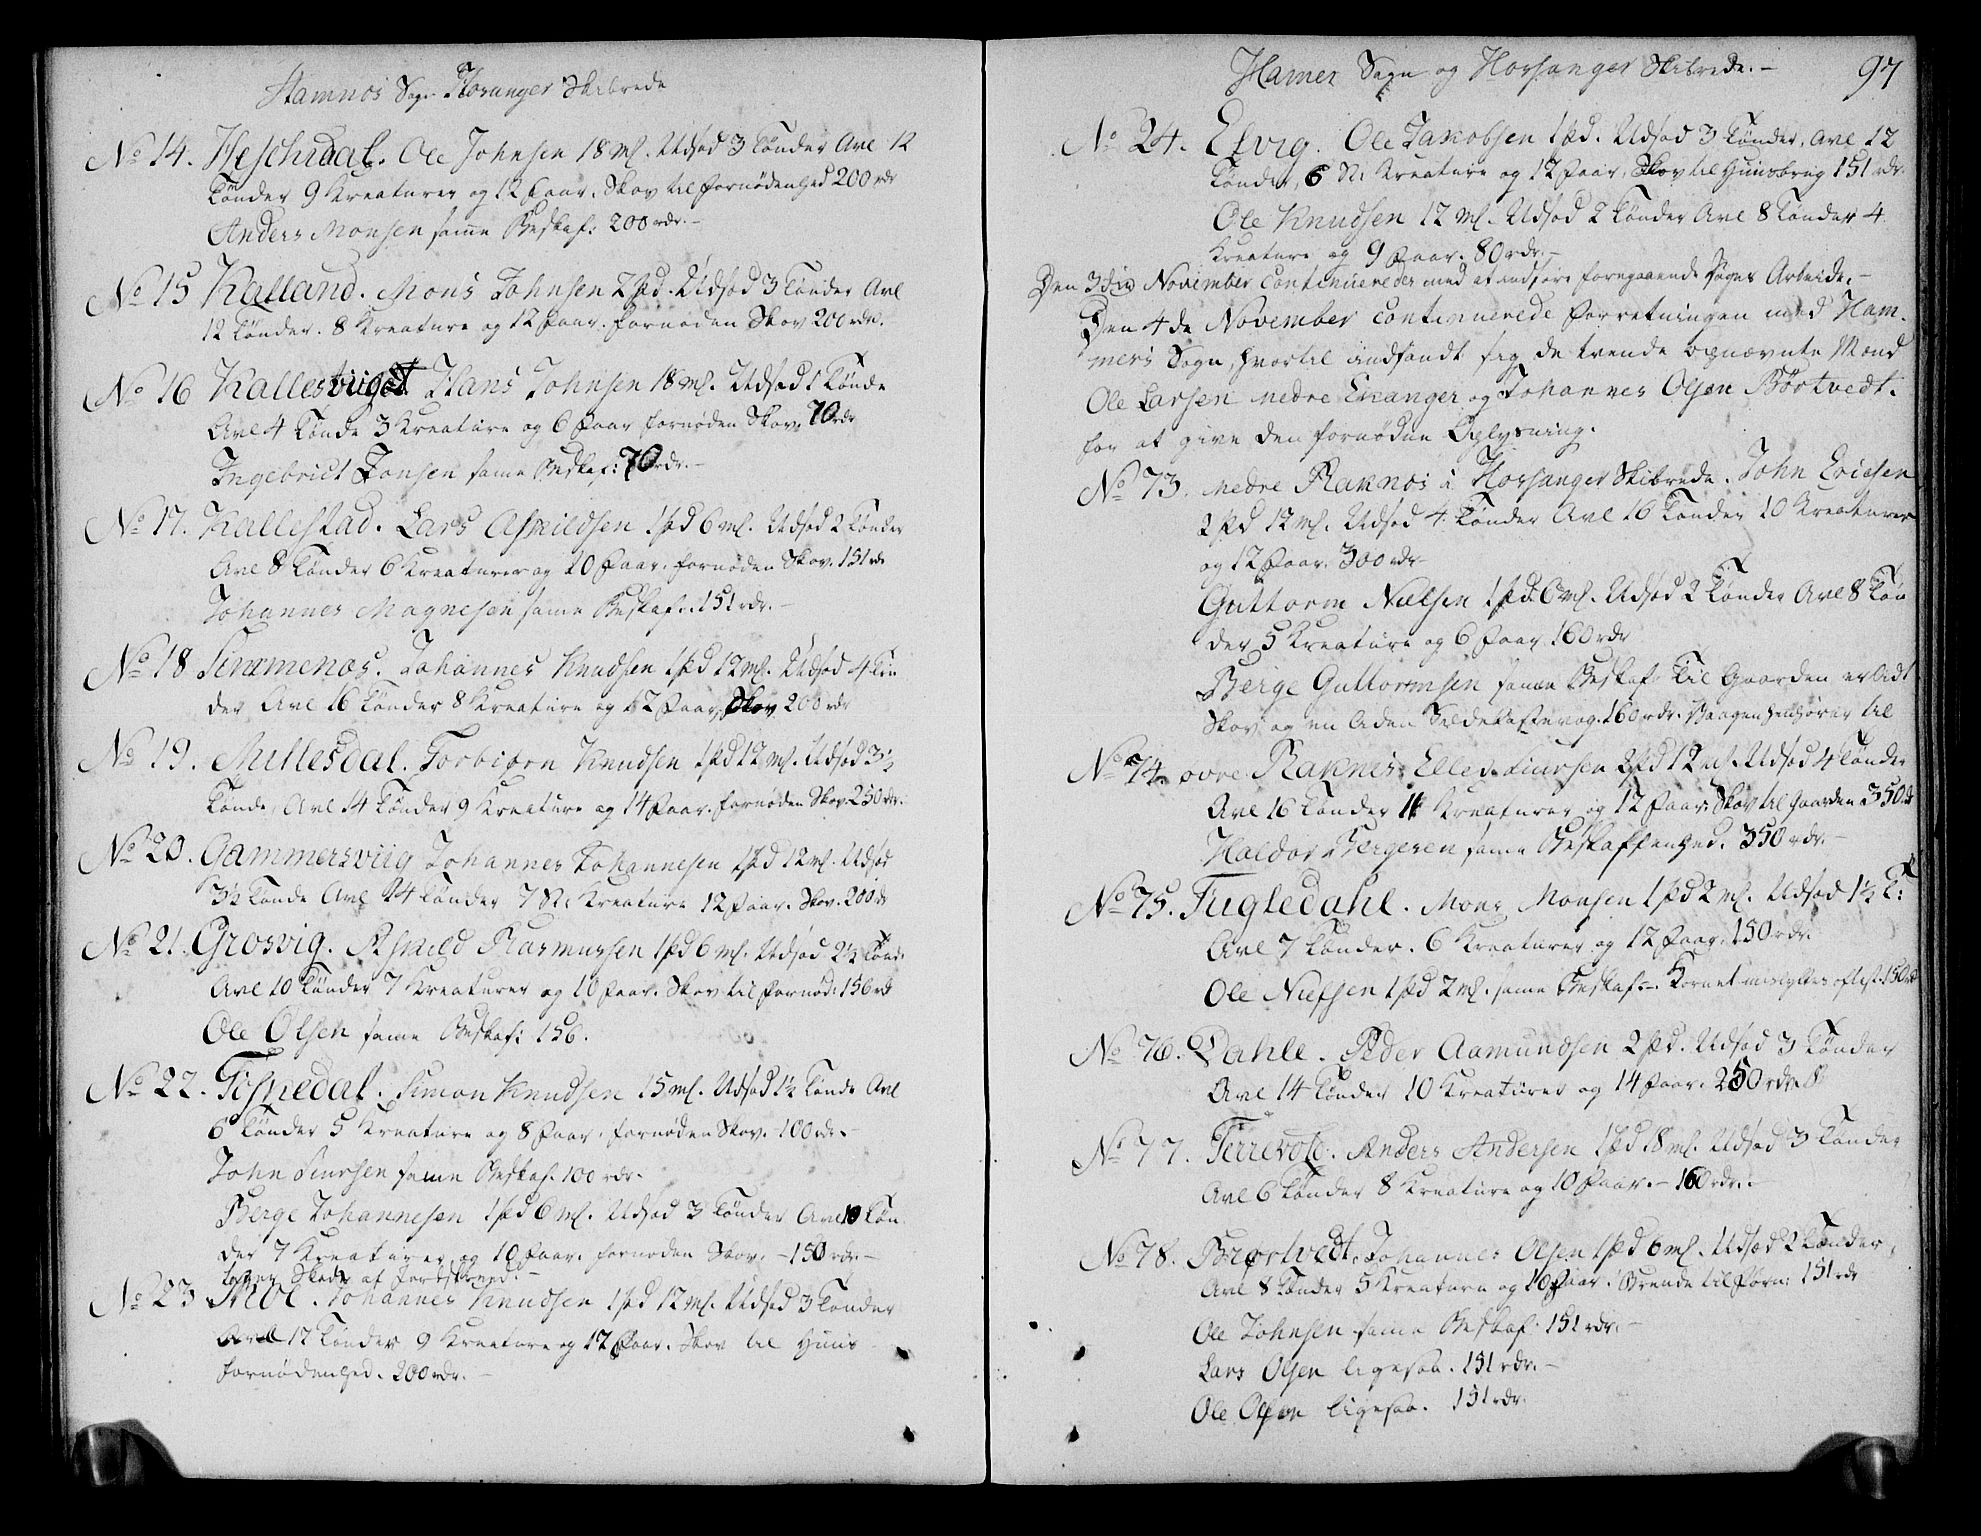 Hamnos Sogn Hosanger Skibrede
No 14. Heschdal. Ole Johnsen 18 ml. Udsæd 3 Tønder Avl 12
Tønder 9 Kreaturer og 12 Faar. Skov til fornødenhed 200 rdr
Anders Monsen samme Beskaf: 200 rdr. –
No 15 Kalland. Mons Johnsen 2 pd. Udsæd 3 Tønder Avl
12 Tønder. 8 Kreature og 12 Faar. fornøden Skov 200 rdr.
No 16 Kallestviiget Hans Johnsen 18 ml. Udsæd 1 Tønde
Avl 4 Tønde 3 Kreature og 6 Faar fornøden Skov. 70 rdr
Ingebrict Jonsen samme Beskaf: 70 rdr. –
No 17. Kallestad. Lars Asmildsen 1 pd 6 ml. Udsæd 2 Tønder
Avl 8 Tønder 6 Kreaturer og 10 Faar. fornøden Skov. 151 rdr
Johannes Magnesen samme Beskaf: 151 rdr. –
No 18 Simmenos. Johannes Knudsen 1 pd 12 ml. Udsæd 4 Tøn
der Avl 16 Tønder 8 Kreature og 12 Faar, Skov 200 rdr
No 19. Millesdal. Torbiørn Knudsen 1 pd 12 ml. Udsæd 3½
Tønde, Avl 14 Tønder 9 Kreature og 14 Faar. fornøden Skov 250 rdr.
No 20. Gammersviig Johannes Johannesen 1 pd 12 ml. Udsæd
3½ Tønde Avl 14 Tønder 7 St: Kreature 12 Faar. Skov. 200 rdr
No 21. Grosvig. Asmild Rasmussen 1 pd 6 ml. Udsæd 2½ Tønd:
Avl 10 Tønder 7 Kreaturer og 10 Faar. Skov til fornød: 156 rdr
Ole Olsen samme Beskaf: 156.
No 22. Tossedal. Simon Knudsen 15 ml. Udsæd 1½ Tønde Avl
6 Tønder 5 Kreature og 8 Faar. fornøden Skov. 100 rdr. –
John Siursen samme Beskaf. 100 rdr.
Berge Johannesen 1 pd 6 ml. Udsæd 3 Tønder Avl 10 Tøn
der 7 Kreaturer og 10 Faar. fornøden Skov. – 150 rdr. –
tager Skade af Jordskreed. –
No 23 Johannes Knudsen 1 pd 12 ml. Udsæd 3 Tønder
Avl 12 Tønder 9 Kreature og 12 Faar. Skov til Huus
fornødenhed. 200 rdr. –
Hamer Sogn og Hosanger Skibrede. – 97
No 24. Elvig. Ole Jakobsen 1 pd. Udsæd 3 Tønder, Avl 12
Tønder, 6 St: Kreature og 12 Faar, Skov til Huusbrug 151 rdr.
Ole Knudsen 12 ml. Udsæd 2 Tønder Avl 8 Tønder 4
Kreature og 9 Faar. 80 rdr. –
Den 3die November Continueredes med at indføre foregaaende Dages Arbeide. –
Den 4de November continuerede forretningen med Ham-
mers Sogn, hvortil indfandt sig de tvende opnævnte Mænd
Ole Larsen nedre Eicanger og Johannes Olsen Børtvedt.
for at give den fornødne Oplysning.
No 73. nedre Raknos i Hosanger Skibrede. John Ericsen
2 pd 12 ml. Udsæd 4 Tønder Avl 16 Tønder 10 Kreaturer
og 12 Faar. 300 rdr
Guttorm Nielsen 1 pd. 6 ml. Udsæd 2 Tønder Avl 8 Tøn
der 5 Kreature og 6 Faar 160 rdr
Berge Guttormsen samme Beskaf. Til Gaarden er lidt
Skov og en liden Sildekastevog. 160 rdr. Vaagen henhører til
No 74. øvre Raknes: Ellend Siursen 2 pd 12 ml. Udsæd 4 Tønder
Avl 16 Tønder 11 Kreaturer og 12 Faar Skov til Gaarden 350 rdr
Haldor Bergesen samme Beskaffenhed. 350 rdr. –
No 75. Fugledahl. Mons Monsen 1 pd 2 ml. Udsæd 1½ T:
Avl 7 Tønder. 6 Kreaturer og 12 Faar. 150 rdr.
Ole Nielsen 1 pd 2 ml. samme Beskaf. –. Kornet mislykkes oftest. 150 rdr
No 76. Dahle. Peder Aamundsen 2 pd. Udsæd 3 Tønder
Avl 14 Tønder 10 Kreaturer og 14 Faar. 250 rdr
No 77. Terrevold. Anders Andersen 1 pd 18 ml. Udsæd 3 Tønder
Avl 6 Tønder 8 Kreature og 10 Faar. – 160 rdr. –
No 78. Brørtvedt. Johannes Olsen 1 pd 6 ml. Udsæd 2 Tønder,
Avl 8 Tønder 5 Kreature og 10 Faar. Brende til Forn: 151 rdr
Ole Johnsen samme Beskaf. 151 rdr. –
Lars Olsen ligesaa. 151 rdr. –
Ole Olsen ligesaa. 151 rdr.